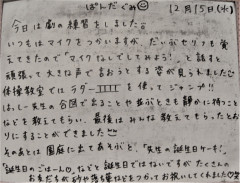 ぱんだぐみ 12月15日(水)
今日は劇の練習をしました
いつもはマイクをつかいますが、だいぶセリフも覚
えてきたので「マイクなしでしてみよう!」と話すと
頑張って大きな声で言おうとする姿が見られました
体操教室ではラダーを使ってジャンプ!!
はしー先生の合図で出ることや並ぶときも静かに待つこと
なども教えてもらい、最後はみんな教えてもらったとお
りにすることができました
そのあとは園庭に出てあそぶと、「先生の誕生日ケーキ!、
「誕生日のごはん」などと誕生日ではないですがたくさんの
お友だちが砂や落ち葉などをつかってお祝いしてくれました